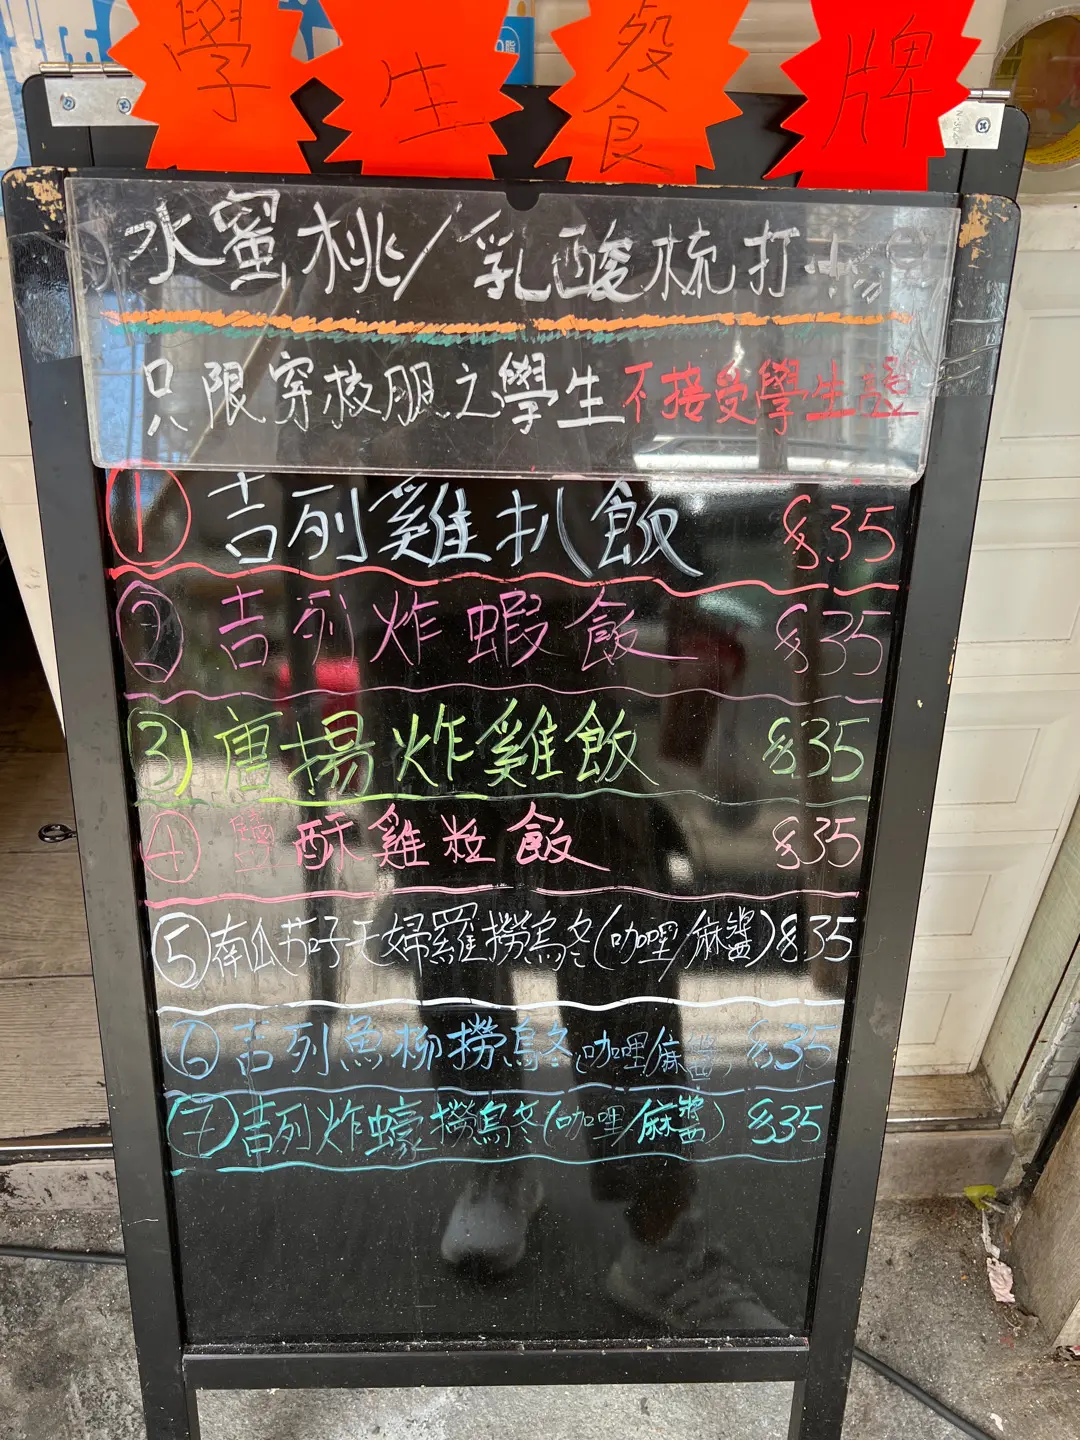 學生餐食牌
水蜜桃/乳酸梳打
只限穿校服之學生不接受學生證
① 吉列雞扒飯 $35
② 吉列炸蝦飯 $35
③ 唐揚炸雞飯 $35
④ 鹽酥雞粒飯 $35
⑤ 南瓜茄子天婦羅撈烏冬(咖哩/麻醬) $35
⑥ 吉列魚柳撈烏冬(咖哩/麻醬) $35
⑦ 吉列炸蠔撈烏冬(咖哩/麻醬) $35